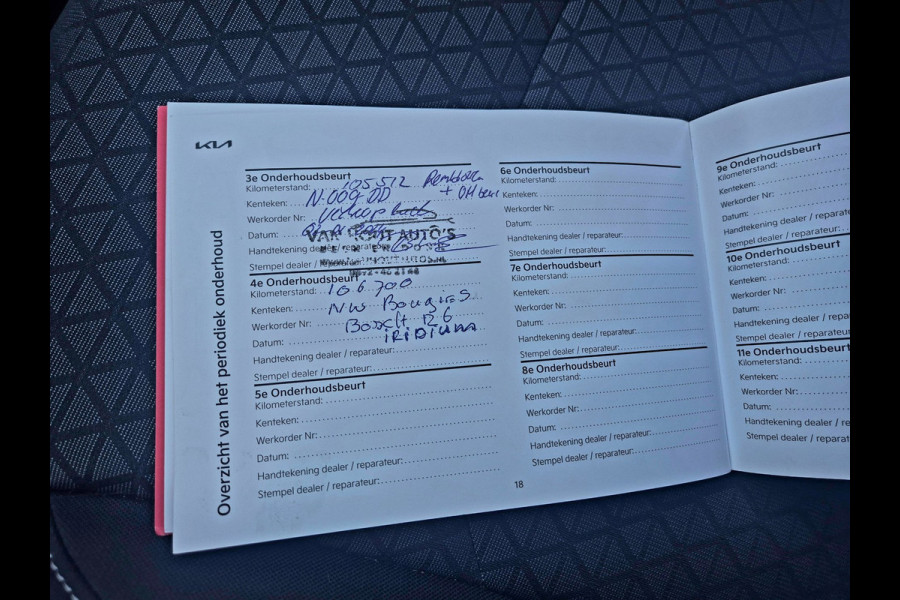 KIA
Overzicht van het periodiek onderhoud
3e Onderhoudsbeurt
Kilometerstand: 105512
Kenteken: N-009-DD
+ OH beurt
Werkorder Nr:
Datum:
VAN HOUT AUTO'S
Handtekening dealer / reparateur:
Stempel dealer / reparateur:
4e Onderhoudsbeurt
Kilometerstand: 106.700
Kenteken: NW Bougies
Werkorder Nr: Bosch
Datum: iRiDiUM
Handtekening dealer / reparateur:
Stempel dealer / reparateur:
5e Onderhoudsbeurt
Kilometerstand:
Kenteken:
Werkorder Nr:
Datum:
Handtekening dealer / reparateur:
Stempel dealer / reparateur:
6e Onderhoudsbeurt
Kilometerstand:
Kenteken:
Werkorder Nr:
Datum:
Handtekening dealer / reparateur:
Stempel dealer / reparateur:
7e Onderhoudsbeurt
Kilometerstand:
Kenteken:
Werkorder Nr:
Datum:
Handtekening dealer / reparateur:
Stempel dealer / reparateur:
8e Onderhoudsbeurt
Kilometerstand:
Kenteken:
Werkorder Nr:
Datum:
Handtekening dealer / reparateur:
Stempel dealer / reparateur:
18
9e Onderhoudsbeurt
Kilometerstand:
Kenteken:
Werkorder Nr:
Datum:
Handtekening dealer / reparate
Stempel dealer / reparateur:
10e Onderhoudsbeurt
Kilometerstand:
Kenteken:
Werkorder Nr:
Datum:
Handtekening dealer / repa
Stempel dealer / reparateur
11e Onderhoudsbeurt
Kilometerstand:
Kenteken:
Werkorder Nr:
Datum:
Handtekening dealer / re
Stempel dealer / reparat